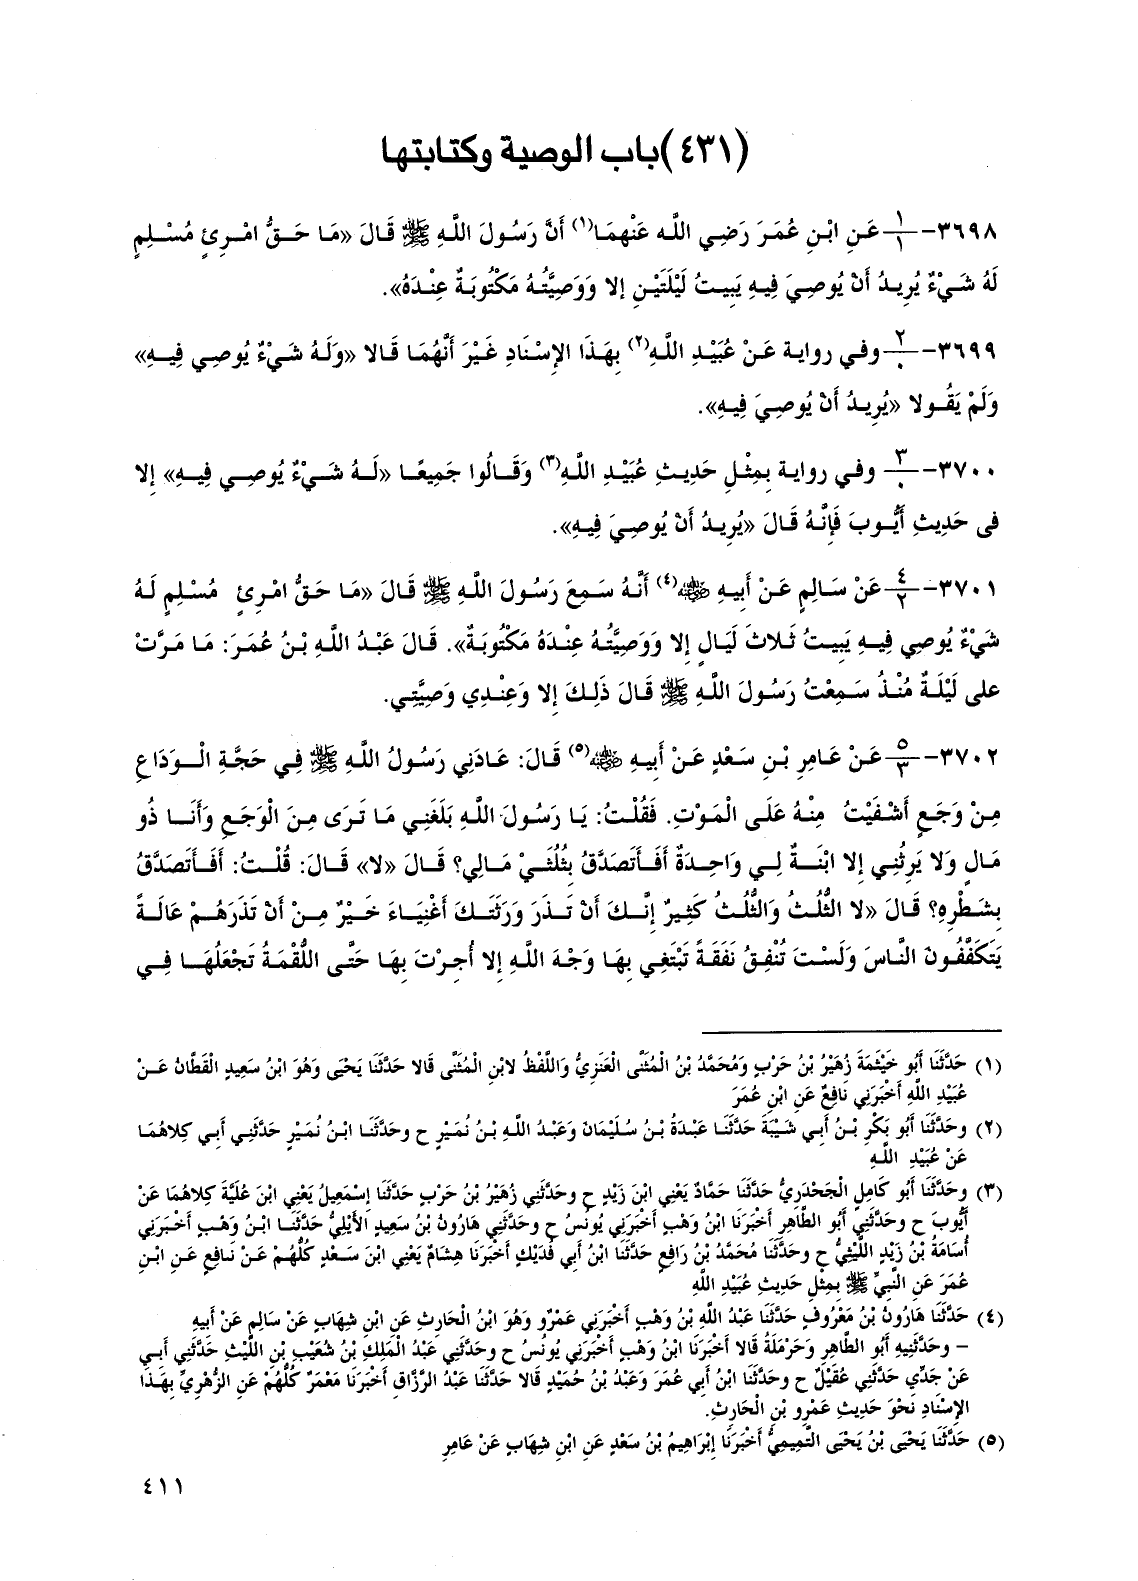 (٤٣١) باب الوصية وكتابتها
٣٦٩٨- ١/١ عَنِ ابْنِ عُمَرَ رَضِي اللَّه عَنْهمَا(١) أَنَّ رَسُولَ اللَّهِ ﷺ قَالَ «مَا حَقُّ امْرِئٍ مُسْلِمٍ
لَهُ شَيْءٌ يُرِيدُ أَنْ يُوصِيَ فِيهِ يَبِيتُ لَيْلَتَيْنِ إلا وَوَصِيَّتُهُ مَكْتُوبَةٌ عِنْدَهُ».
٣٦٩٩- ٢/٠ وفي رواية عَنْ عُبَيْدِ اللَّهِ(٢) بِهَذَا الإسْنَادِ غَيْرَ أَنَّهُمَا قَالا «وَلَهُ شَيْءٌ يُوصِي فِيهِ»
وَلَمْ يَقُولا «يُرِيدُ أَنْ يُوصِيَ فِيهِ».
٣٧٠٠- ٣/٠ وفي رواية بِمِثْلِ حَدِيثِ عُبَيْدِ اللَّهِ(٣) وَقَالُوا جَمِيعًا «لَهُ شَيْءٌ يُوصِي فِيهِ» إلا
فى حَدِيثِ أَيُّوبَ فَإِنَّهُ قَالَ «يُرِيدُ أَنْ يُوصِيَ فِيهِ».
٣٧٠١- ٤/٢ عَنْ سَالِمٍ عَنْ أَبِيهِ ﵁(٤) أَنَّهُ سَمِعَ رَسُولَ اللَّهِ ﷺ قَالَ «مَا حَقُّ امْرِئٍ مُسْلِمٍ لَهُ
شَيْءٌ يُوصِي فِيهِ يَبِيتُ ثَلاثَ لَيَالٍ إلا وَوَصِيَّتُهُ عِنْدَهُ مَكْتُوبَةٌ». قَالَ عَبْدُ اللَّهِ بْنُ عُمَرَ: مَا مَرَّتْ
على لَيْلَةٌ مُنْذُ سَمِعْتُ رَسُولَ اللَّهِ ﷺ قَالَ ذَلِكَ إلا وَعِنْدِي وَصِيَّتِي.
٣٧٠٢- ٥/٣ عَنْ عَامِرِ بْنِ سَعْدٍ عَنْ أَبِيهِ ﵁(٥) قَالَ: عَادَنِي رَسُولُ اللَّهِ ﷺ فِي حَجَّةِ الْوَدَاعِ
مِنْ وَجَعٍ أَشْفَيْتُ مِنْهُ عَلَى الْمَوْتِ. فَقُلْتُ: يَا رَسُولَ اللَّهِ بَلَغَنِي مَا تَرَى مِنَ الْوَجَعِ وَأَنَا ذُو
مَالٍ وَلا يَرِثُنِي إلا ابْنَةٌ لِي وَاحِدَةٌ أَفَأَتَصَدَّقُ بِثُلُثَيْ مَالِي؟ قَالَ «لا» قَالَ: قُلْتُ: أَفَأَتَصَدَّقُ
بِشَطْرِهِ؟ قَالَ «لا الثُّلُثُ وَالثُّلُثُ كَثِيرٌ إِنَّكَ أَنْ تَذَرَ وَرَثَتَكَ أَغْنِيَاءَ خَيْرٌ مِنْ أَنْ تَذَرَهُمْ عَالَةً
يَتَكَفَّفُونَ النَّاسَ وَلَسْتَ تُنْفِقُ نَفَقَةً تَبْتَغِي بِهَا وَجْهَ اللَّهِ إلا أُجِرْتَ بِهَا حَتَّى اللُّقْمَةُ تَجْعَلُهَا فِي
(١) حَدَّثَنَا أَبُو خَيْثَمَةَ زُهَيْرُ بْنُ حَرْبٍ وَمُحَمَّدُ بْنُ الْمُثَنَّى الْعَنَزِيُّ وَاللَّفْظُ لابْنِ الْمُثَنَّى قَالا حَدَّثَنَا يَحْيَى وَهُوَ ابْنُ سَعِيدٍ الْقَطَّانُ عَنْ
عُبَيْدِ اللَّهِ أَخْبَرَنِي نَافِعٌ عَنِ ابْنِ عُمَرَ
(٢) وحَدَّثَنَا أَبُو بَكْرِ بْنُ أَبِي شَيْبَةَ حَدَّثَنَا عَبْدَةُ بْنُ سُلَيْمَانَ وَعَبْدُ اللَّهِ بْنُ نُمَيْرٍ ح وحَدَّثَنَا ابْنُ نُمَيْرٍ حَدَّثَنِي أَبِي كِلاهُمَا
عَنْ عُبَيْدِ اللَّهِ
(٣) وحَدَّثَنَا أَبُو كَامِلٍ الْجَحْدَرِيُّ حَدَّثَنَا حَمَّادٌ يَعْنِي ابْنَ زَيْدٍ ح وحَدَّثَنِي زُهَيْرُ بْنُ حَرْبٍ حَدَّثَنَا إِسْمَعِيلُ يَعْنِي ابْنَ عُلَيَّةَ كِلاهُمَا عَنْ
أَيُّوبَ ح وحَدَّثَنِي أَبُو الطَّاهِرِ أَخْبَرَنَا ابْنُ وَهْبٍ أَخْبَرَنِي يُونُسُ ح وحَدَّثَنِي هَارُونُ بْنُ سَعِيدٍ الأَيْلِيُّ حَدَّثَنَا ابْنُ وَهْبٍ أَخْبَرَنِي
أُسَامَةُ بْنُ زَيْدٍ اللَّيْثِيُّ ح وحَدَّثَنَا مُحَمَّدُ بْنُ رَافِعٍ حَدَّثَنَا ابْنُ أَبِي فُدَيْكٍ أَخْبَرَنَا هِشَامٌ يَعْنِي ابْنَ سَعْدٍ كُلُّهُمْ عَنْ نَافِعٍ عَنِ ابْنِ
عُمَرَ عَنِ النَّبِيِّ ﷺ بِمِثْلِ حَدِيثِ عُبَيْدِ اللَّهِ
(٤) حَدَّثَنَا هَارُونُ بْنُ مَعْرُوفٍ حَدَّثَنَا عَبْدُ اللَّهِ بْنُ وَهْبٍ أَخْبَرَنِي عَمْرٌو وَهُوَ ابْنُ الْحَارِثِ عَنِ ابْنِ شِهَابٍ عَنْ سَالِمٍ عَنْ أَبِيهِ
– وحَدَّثَنِيهِ أَبُو الطَّاهِرِ وَحَرْمَلَةُ قَالا أَخْبَرَنَا ابْنُ وَهْبٍ أَخْبَرَنِي يُونُسُ ح وحَدَّثَنِي عَبْدُ الْمَلِكِ بْنُ شُعَيْبِ بْنِ اللَّيْثِ حَدَّثَنِي أَبِي
عَنْ جَدِّي حَدَّثَنِي عُقَيْلٌ ح وحَدَّثَنَا ابْنُ أَبِي عُمَرَ وَعَبْدُ بْنُ حُمَيْدٍ قَالا حَدَّثَنَا عَبْدُ الرَّزَّاقِ أَخْبَرَنَا مَعْمَرٌ كُلُّهُمْ عَنِ الزُّهْرِيِّ بِهَذَا
الإِسْنَادِ نَحْوَ حَدِيثِ عَمْرِو بْنِ الْحَارِثِ.
(٥) حَدَّثَنَا يَحْيَى بْنُ يَحْيَى التَّمِيمِيُّ أَخْبَرَنَا إِبْرَاهِيمُ بْنُ سَعْدٍ عَنِ ابْنِ شِهَابٍ عَنْ عَامِرِ
٤١١